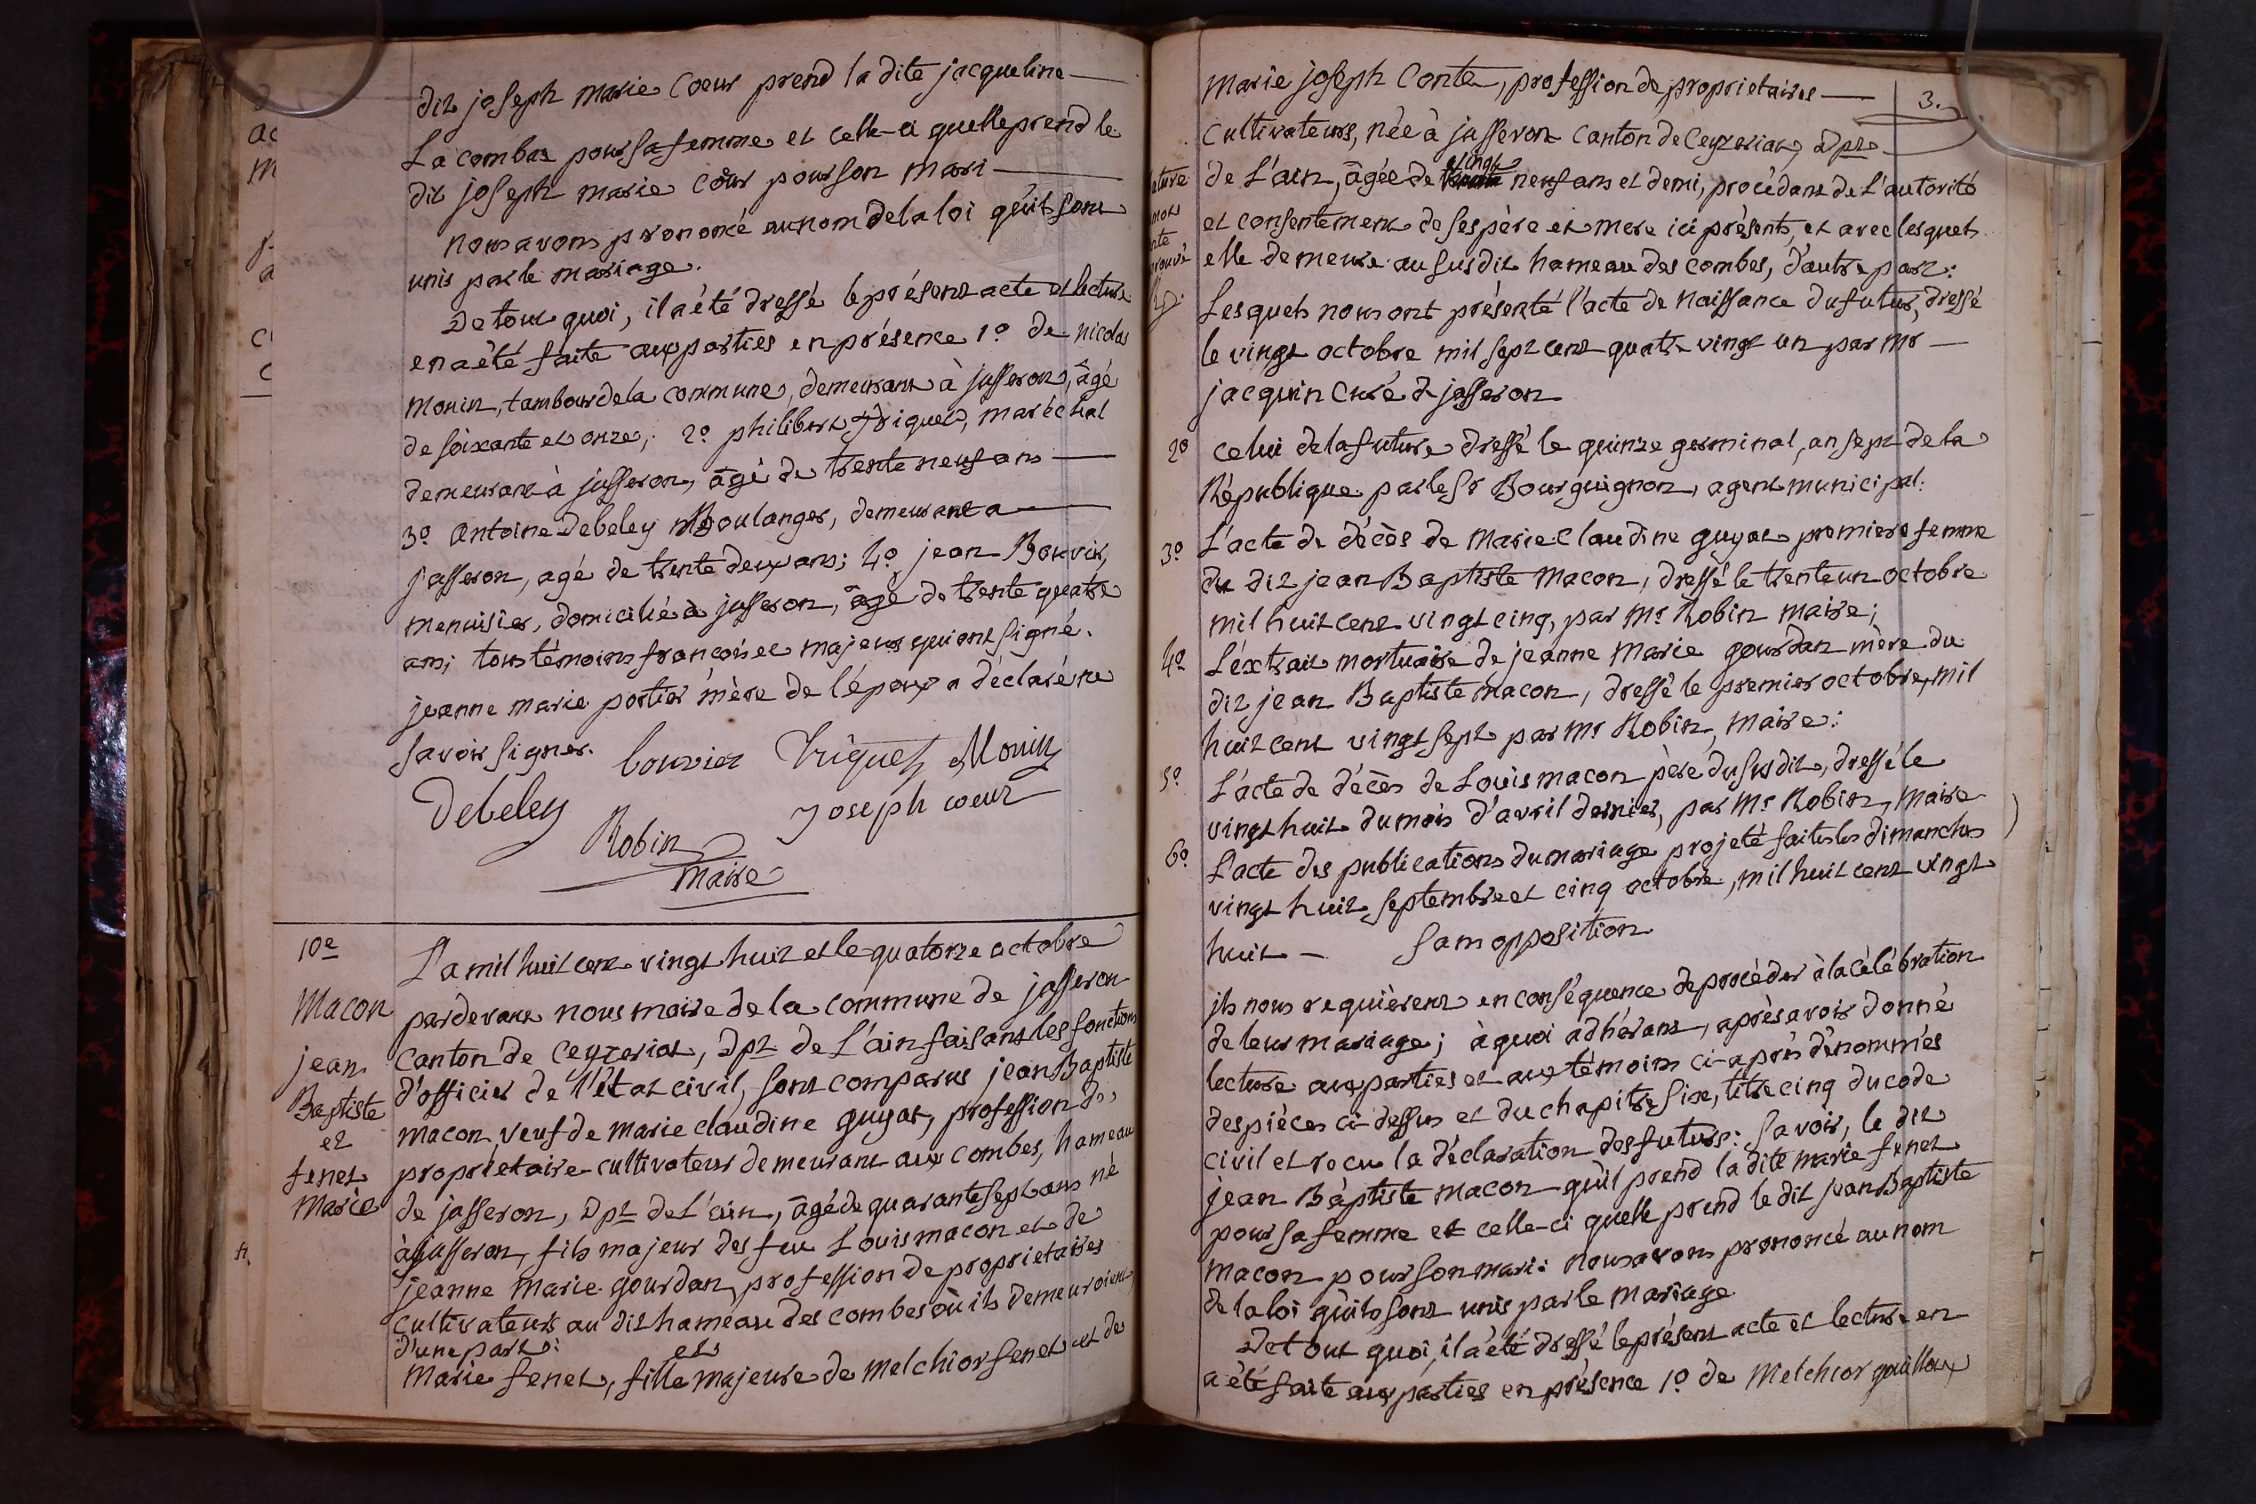 dit joseph marie Coeur prend la dite jacqueline
Lacombas pour sa femme et celle-ci quelle prend le
dit joseph marie cœur pour son mari
nous avons prononcé au nom de la loi qu'ils sont
unis par le mariage.
De tout quoi, il a été dressé le présent acte et lecture
en a été faite aux parties en présence 1º de nicolas
monin, tambour de la commune, demeurant à jasseron, âgé
de soixante et onze; 2º philibert triquet, maréchal
demeurant à jasseron, âgé de trente neuf ans
3º antoine Debeley Boulanger, demeurant a
jasseron, agé de trente deux ans; 4º jean Bouvier,
menuisier, domicilié à jasseron, âgé de trente quatre
ans; tous témoins françois et majeurs qui ont signé.
jeanne marie portier mère de l'époux a déclaré ne
savoir signer.
bouvier Triquet Monin
Debeley Joseph coeur
Robin
maire
10e
Macon
jean
Baptiste
et
fenet
Marie
L'a mil huit cent vingt huit et le quatorze octobre
pardevant nous maire de la commune de jasseron
canton de ceyzeriat, Dpt de L'ain faisant les fonctions
d'officier de l'état civil, sont comparus jean Baptiste
macon, veuf de marie claudine guyat, profession de
propriétaire-cultivateur demeurant aux combes, hameau
de jasseron, Dpt de L'ain, âgé de quarante sept ans né
à jasseron, fils majeur des feu Louis macon et de
jeanne Marie gourdan, profession de proprietaires
cultivateurs au dit hameau des combes où ils demeuroient,
d'une part:
et
Marie fenet, fille majeure de melchior fenet et de
3.
marie joseph Conte, profession de proprietaires
cultivateurs, née à jasseron canton de Ceyzeriat, Dpt
vingt
de L'ain, âgée de neuf ans et demi, procédant de L'autorité
et consentement de ses père et mere ici présents, et avec lesquels
elle demeure au susdit hameau des combes, d'autre part:
Lesquels nous ont présenté l'acte de naissance du futur, dressé
le vingt octobre mil sept cent quatre vingt un par mr
jacquin curé de jasseron
2º celui de la future dressé le quinze germinal, an sept de la
République par le Sr Bourguignon, agent municipal:
3º L'acte de décès de Marie Claudine guyat premiere femme
du dit jean Baptiste Macon, dressé le trente un octobre
mil huit cent vingt cinq, par Mr Robin maire;
4º L'extrait mortuaire de jeanne Marie gourdan mère du
dit jean Baptiste macon, dressé le premier octobre, mil
huit cent vingt sept par Mr Robin, maire:
5º L'acte de décès de Louis macon père du susdit, dressé le
vingt huit du mois d'avril dernier, par Mr Robin, maire
6º L'acte des publications du mariage projeté faites les dimanches
vingt huit septembre et cinq octobre, mil huit cent vingt
huit – sans opposition
ils nous requièrent en conséquence de procéder à la célébration
de leur mariage; à quoi adhérant, après avoir donné
lecture aux parties et aux témoins ci-après dénommés
des pièces ci-dessus et du chapitre six, titre cinq du code
civil et reçu la déclaration des futurs: savoir, le dit
jean Baptiste macon qu'il prend la dite marie fenet
pour sa femme et celle-ci quelle prend le dit jean Baptiste
macon pour son mari: nous avons prononcé au nom
de la loi qu'ils sont unis par le mariage
De tout quoi, il a été dressé le présent acte et lecture en
a été faite aux parties en présence 1º de Melchior guilloux